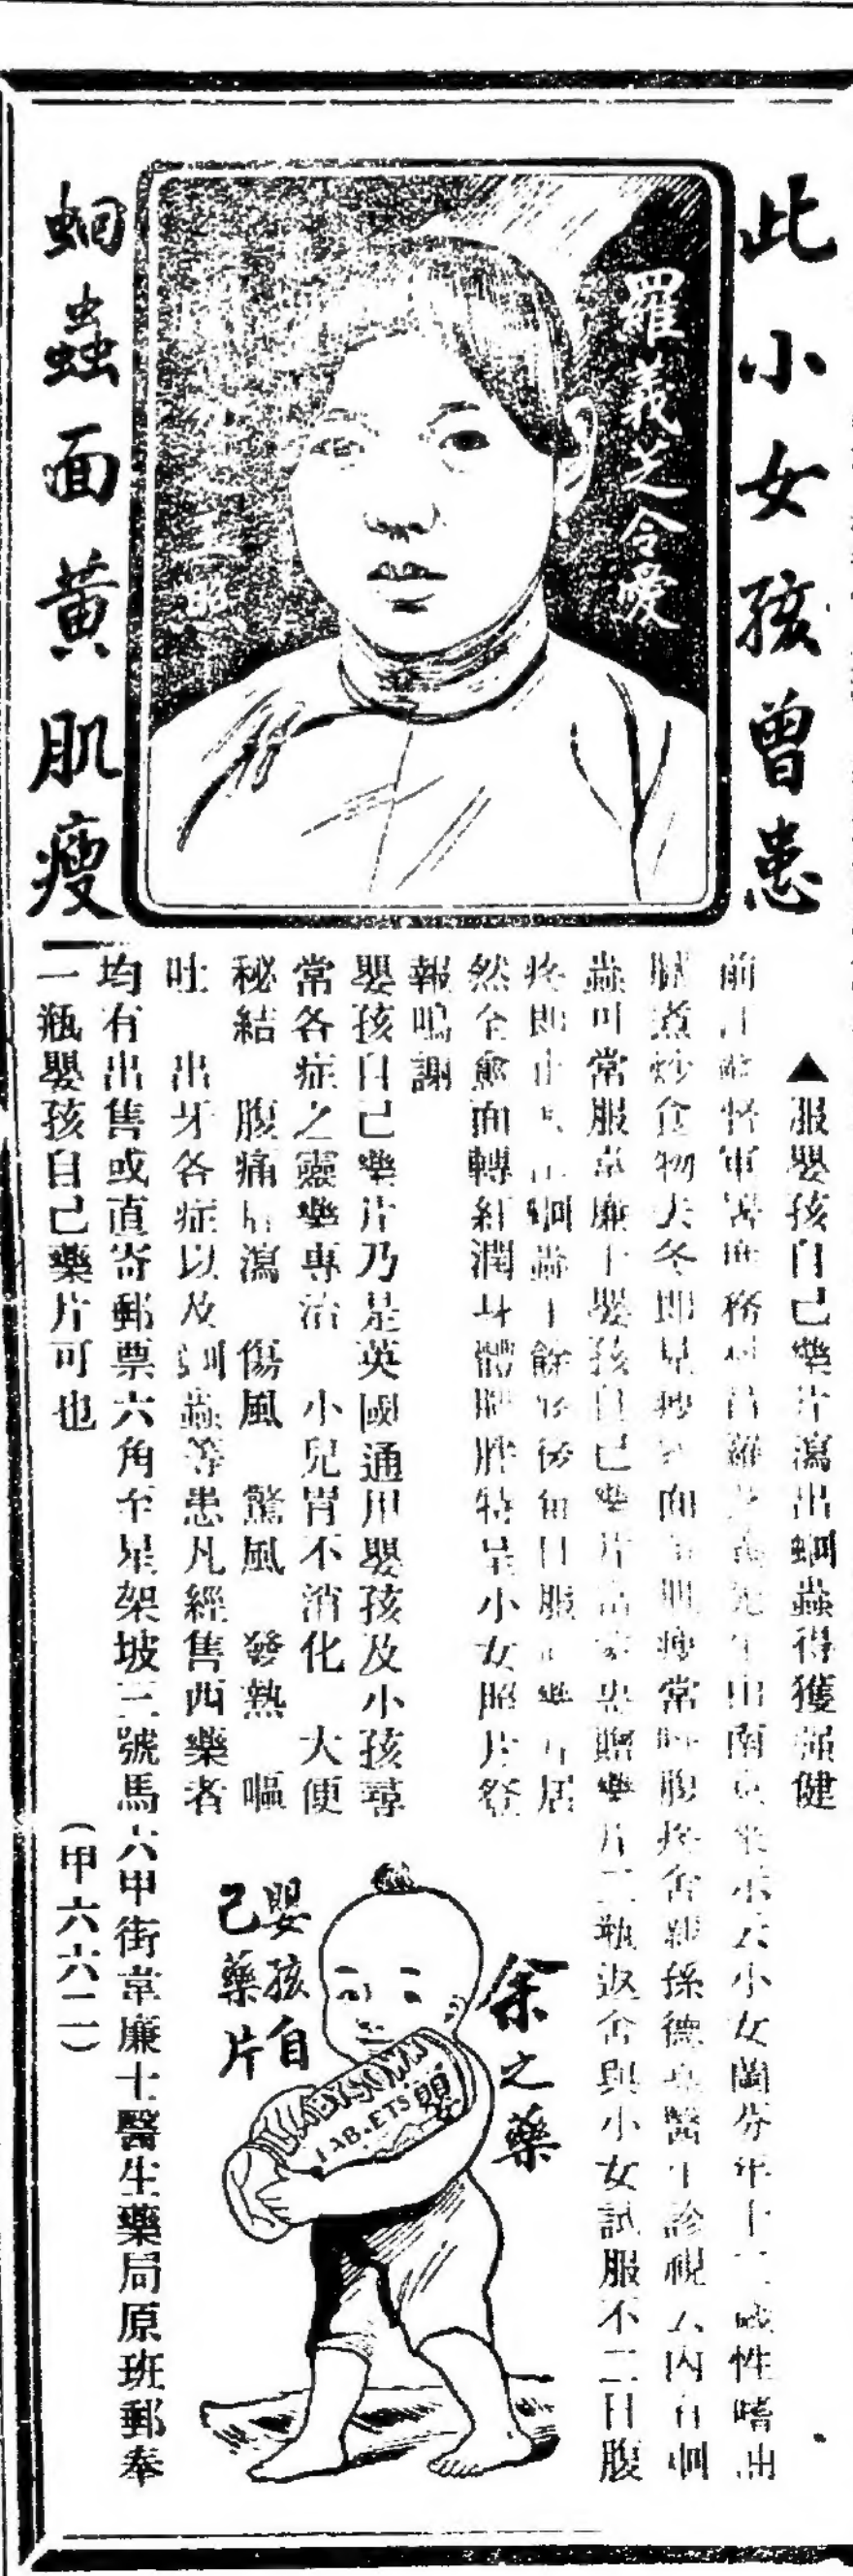 此小女孩曾患
羅義芝令愛
玉照
蛔蟲面黃肌瘦
▲服嬰孩自己藥片瀉出蛔蟲得獲強健
前江 將軍署 務 羅 先生由南京來示云小女蘭芬年十二歲性嗜油
膩煮炒食物去冬即見 面 肌瘦常 腹疼舍親孫德 醫生診視云內有蛔
蟲可常服韋廉士嬰孩自己藥片 贈藥片二瓶返舍與小女試服不二日腹
疼即止 出蛔蟲十餘 後每日服 藥片居
然全愈面轉紅潤身體肥胖特呈小女照片登
報鳴謝
嬰孩自己藥片乃是英國通用嬰孩及小孩尋
常各症之靈藥專治 小兒胃不消化 大便
秘結 腹痛 瀉 傷風 驚風 發熱 嘔
吐 出牙各症以及蛔蟲等患凡經售西藥者
均有出售或直寄郵票六角至星架坡三號馬六甲街韋廉士醫生藥局原班郵奉
一瓶嬰孩自己藥片可也
(甲六六二)
余之藥
BABY'S OWN
TABLETS
嬰孩自
己藥片